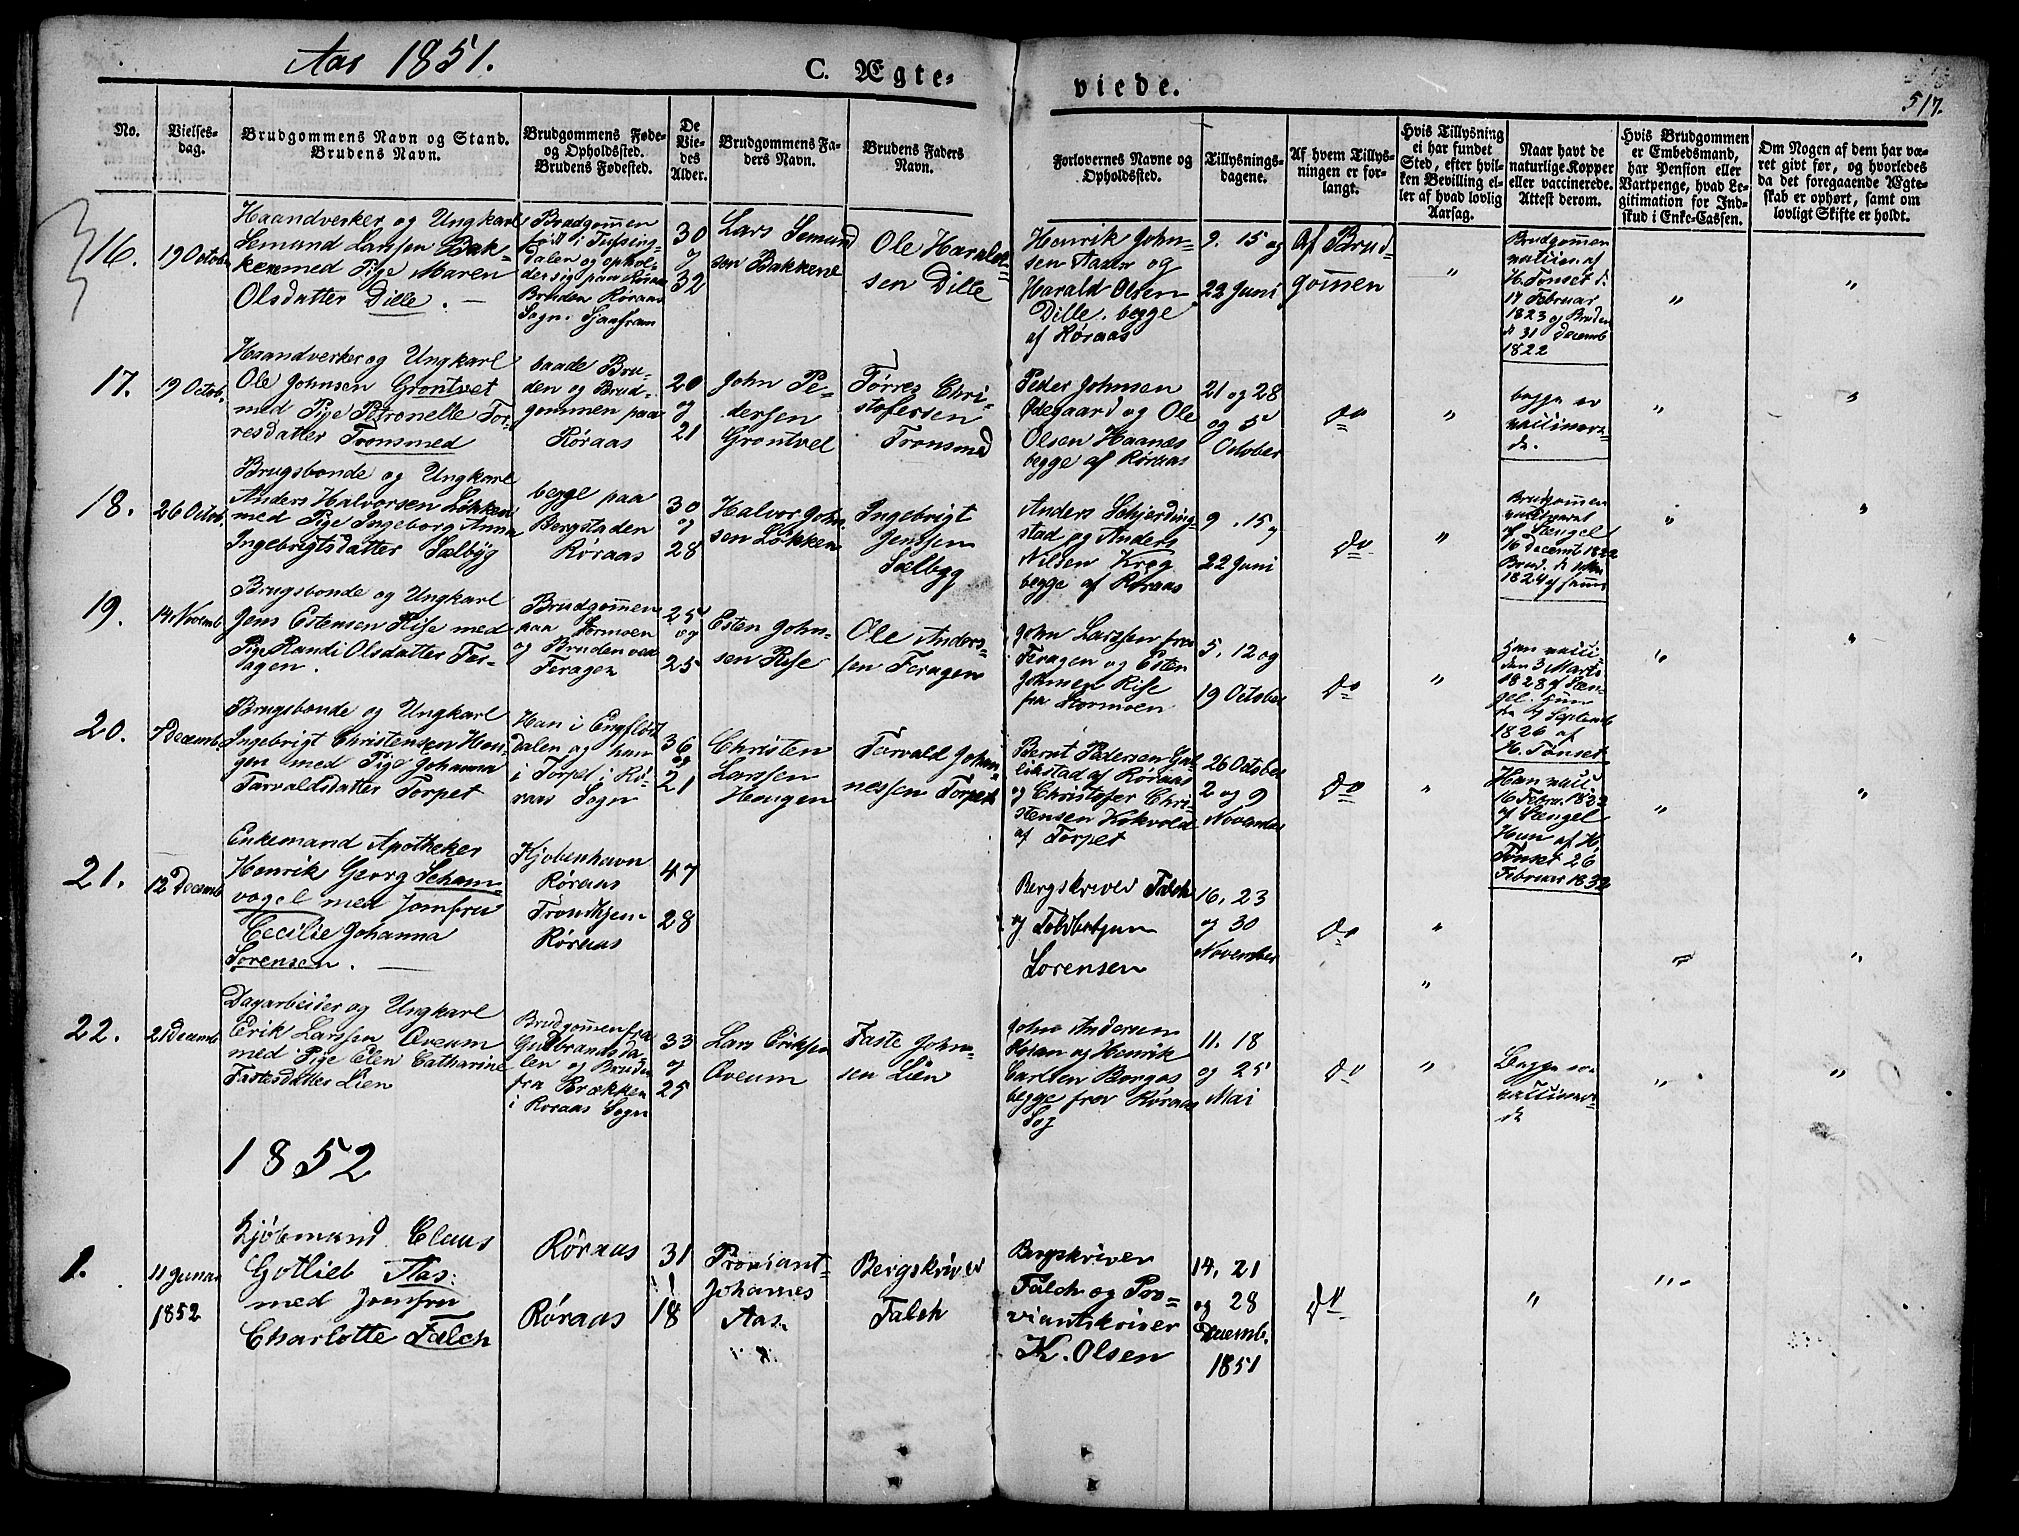 Aar 1851.
C. Ægte-
viede.
517.
No.
Vielses-
dag.
Brudgommens Navn og Stand.
Brudens Navn.
Brudgommens Føde-
og Opholdssted.
Brudens Fødested.
De
Vie-
des
Alder.
Brudgommens Fa-
ders Navn.
Brudens Faders
Navn.
Forlovernes Navne og
Opholdssted.
Tillysnings-
dagene.
Af hvem Tillys-
ningen er for-
langt.
Hvis Tillysning
ei har fundet
Sted, efter hvil-
ken Bevilling el-
ler af hvad lovlig
Aarsag.
Naar havt de
naturlige Kopper
eller vaccinerede.
Attest derom.
Hvis Brudgommen
er Embedsmand,
har Pension eller
Vartpenge, hvad Le-
gitimation for Ind-
skud i Enke-Cassen.
Om Nogen af dem har væ-
ret givt før, og hvorledes
da det foregaaende Ægte-
skab er ophørt, samt om
lovligt Skifte er holdt.
16.
19 Octob
Haandverker og Ungkarl
Semund Larssen Bak-
ken med Pige Maren
Olsdatter Dille. —
Brudgommen
født i Tufsing-
dalen og ophol-
der sig paa Røraas
Bruden Røraas
Sogn.
30
og
32
Lars Semund
sen Bakkene
Ole Harald-
sen Dille
Henrik John-
sen Aasen og
Harald Olsen
Dille, begge
af Røraas
9. 15 og
22 Juni
Af Brud-
gommen
"
Brudgommen
af
H. Tønset d:
17 Februar
1823 og Bruden
d. 31 Decemb
1822
"
"
17.
19 Octob.
Haandverker og Ungkarl
Ole Johnsen Grøntvet
med Pige Petronelle Tor-
resdatter Tronsmed
baade Bru-
den og Brud-
gommen paa
Røraas
20
og
21
John Pe-
dersen
Grøntvet
Torres Chri-
stofersen
Tronsmed
Peder Johnsen
Ødegaard og Ole
Olsen Haanæs
begge af Røraas
21 og 28
og 5
October
do
"
begge er
vaccinere-
de.
"
"
18.
26 Octob.
Brugsbonde og Ungkarl
Anders Halvorsen Løkken
med Pige Ingeborg Anna
Ingebrigtsdatter Sælbyg
begge paa
Bergstaden
Røraas
30
og
28
Halvor John
sen Løkken
Ingebrigt
Jenssen
Sælbyg
Anders Schjerding-
stad og Anders
Nilsen Krog
begge af Røraas
9. 15 og
22 Juni
do
"
Brudgommen
af Stengel
16 Decemb 1822
Brud.
1824 af samme
"
"
19.
14 Novemb
Brugsbonde og Ungkarl
Jens Estensen Rise med
Pige Randi Olsdatter Fer-
agen.
Brudgommen
paa Stormoen
og Bruden ved
Feragen
25
og
25
Esten John-
sen Rise
Ole Anders-
sen Feragen
John Larssen fra
Feragen og Esten
Johnsen Rise
fra Stormoen
5, 12 og
19 October
do
"
Han vacci
den 3 Marts
1828 af Sten-
gel
7 Septemb
1826 af
H. Tønset
"
"
20.
7 Decemb
Brugsbonde og Ungkarl
Ingebrigt Christensen Hou-
gen med Pige Johanna
Tarvaldsdatter Torpet
Han i
Dalen og hun
i Torpet i Rø-
raas Sogn
36
og
21
Christen
Larssen
Hougen
Tarvald Johan-
nessen Torpet
Bernt Pedersen Gul-
likstad af Røraas
og Christofer Chri-
stensen Kokvold
af Torpet
26 October
2 og 9
November
do
"
Han vacci
16 Februar 1822
af Stengel
Hun af H.
Tønset 26
Februar 1832
"
"
21.
12 Decemb
Enkemand Apotheker
Henrik Georg Scham-
vogel med Jomfru
Cecilie Johanna
Sørensen. —
Kjøbenhavn
Røraas
Trondhjem
Røraas
47
28
Bergskriver Falch
og Toldbetjent
Sørensen
16, 23
og 30
November
do
"
"
"
"
22.
21 Decemb
Dagarbeider og Ungkarl
Erik Larssen Øveum
med Pige Elen Cathrine
Fastesdatter Lien
Brudgommen fra
Gudbrandsda-
len og Bruden
fra Brækken
i Røraas Sogn
33
og
25
Lars Eriksen
Øveum
Faste John-
sen Lien
John Andersen
og Henrik
Carlsen Borgos
begge fra Røraas
Sog
11. 18
og 25
Mai
do
"
Begge ere
vaccinere-
de
"
"
1852
1.
11 Januar
1852
Kjøbmand Claus
Gotlieb Aas
med Jomfru
Charlotte Falch
Røraas
Røraas
31
18
Proviant-
Johannes
Aas.
Bergskriver
Falch
Bergskriver
Falch og Pro-
viantskriver
K. Olsen
14, 21
og 28
Decemb.
1851
do
"
"